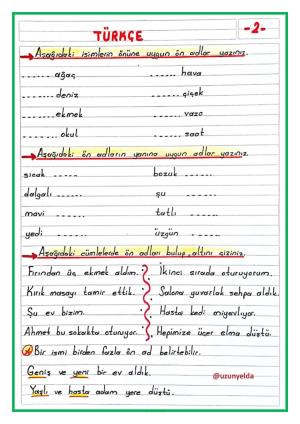 TÜRKÇE
-2-
Aşağıdaki isimlerin önüne uygun ön adlar yazınız.
....... ağaç ....... hava
....... deniz ....... çiçek
....... ekmek ....... vazo
....... okul ....... saat
Aşağıdaki ön adların yanına uygun adlar yazınız.
sıcak ....... bozuk .......
dalgalı ....... şu .......
mavi ....... tatlı .......
yedi ....... üzgün .......
Aşağıdaki cümlelerde ön adları bulup, altını çiziniz.
Fırından üç ekmek aldım. İkinci sırada oturuyorum.
Kırık masayı tamir ettik. Salona yuvarlak sehpa aldık.
Şu ev bizim. Hasta kedi miyavlıyor.
Ahmet bu sokakta oturuyor. Hepimize üçer elma düştü.
Bir ismi birden fazla ön ad belirtebilir.
Geniş ve yeni bir ev aldık.
@uzunyelda
Yaşlı ve hasta adam yere düştü.